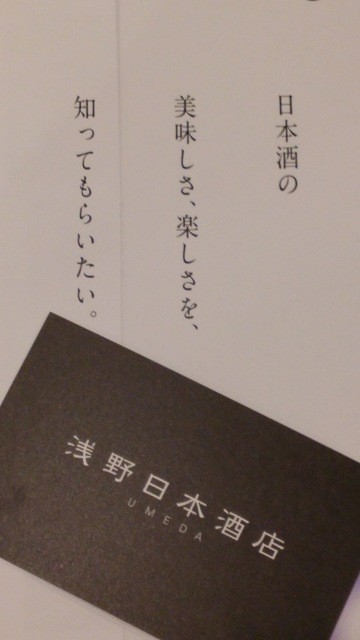 日本酒の
美味しさ、楽しさを、
知ってもらいたい。
浅野日本酒店
UMEDA